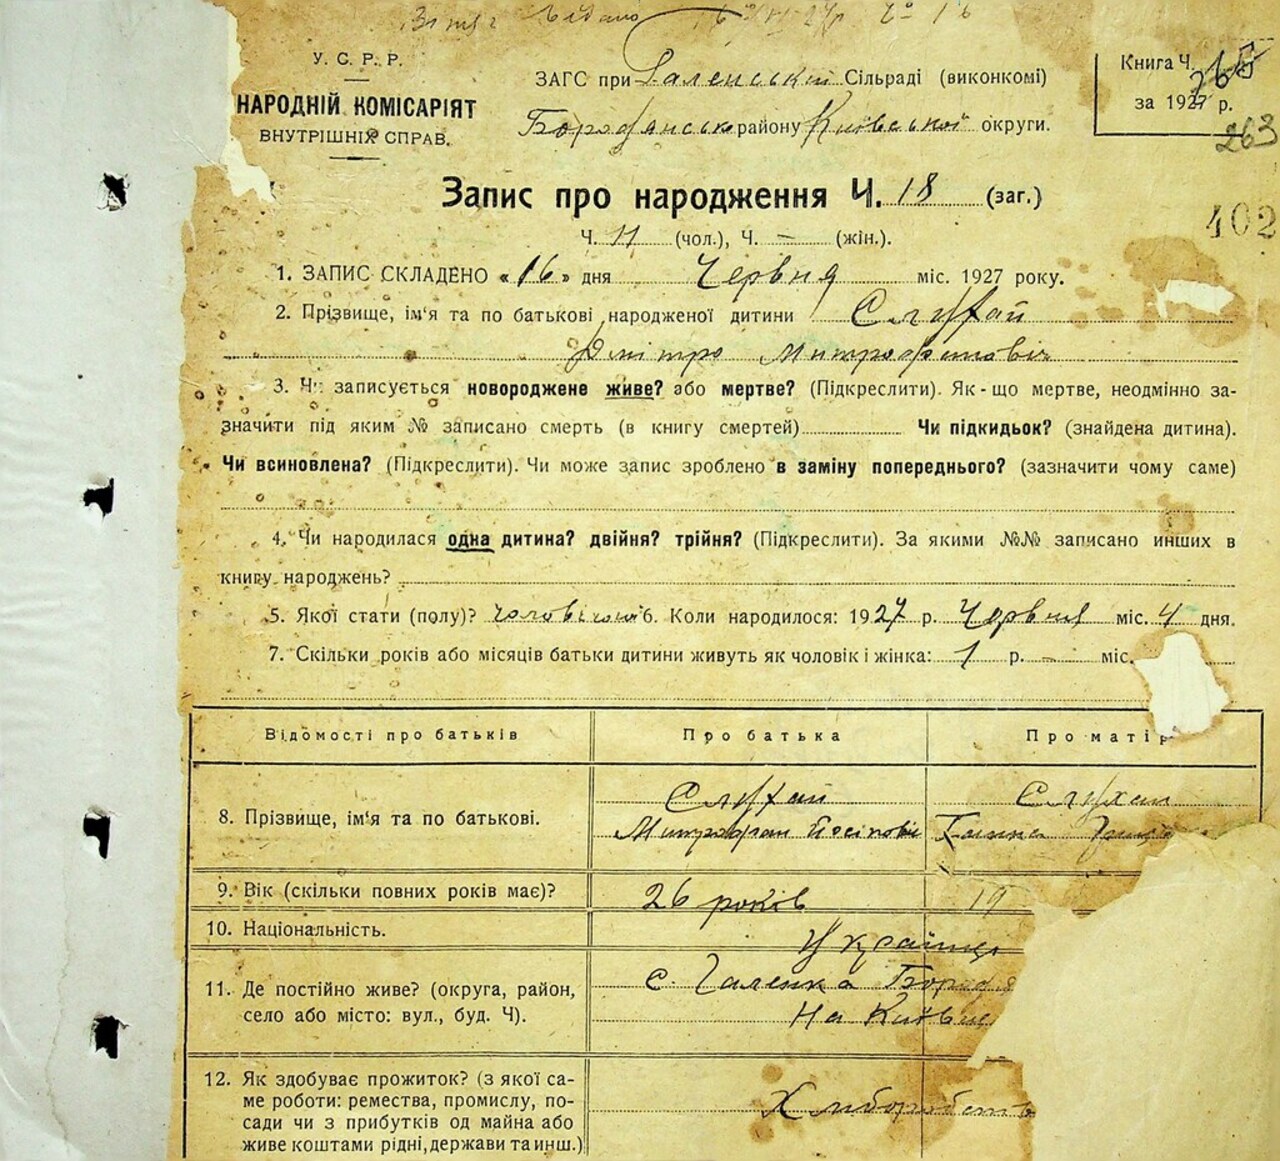 У. С. Р. Р.
НАРОДНІЙ КОМІСАРІЯТ
ВНУТРІШНІХ СПРАВ.
ЗАГС при Галенській Сільраді (виконкомі)
Бородянськ району Київської округи.
Книга Ч.
за 1927 р.
263
402
Запис про народження Ч. 18 (заг.)
Ч. 11 (чол.), Ч. — (жін.).
1. ЗАПИС СКЛАДЕНО «16» дня Червня міс. 1927 року.
2. Прізвище, ім'я та по батькові народженої дитини Слухай
Дмітро Митрофанович
3. Чи записується новороджене живе? або мертве? (Підкреслити). Як-що мертве, неодмінно за-
значити під яким № записано смерть (в книгу смертей) Чи підкидьок? (знайдена дитина).
Чи всиновлена? (Підкреслити). Чи може запис зроблено в заміну попереднього? (зазначити чому саме)
4. Чи народилася одна дитина? двійня? трійня? (Підкреслити). За якими №№ записано инших в
книгу народжень?
5. Якої стати (полу)? 6. Коли народилося: 1927 р. Червня міс. 4 дня.
7. Скільки років або місяців батьки дитини живуть як чоловік і жінка: 1 р. — міс.
Відомості про батьків Про батька Про матір
8. Прізвище, ім'я та по батькові. Слухай Слухай
Митрофан Йосіпові Ганна
9. Вік (скільки повних років має)? 26 років 19
10. Національність. Українці
11. Де постійно живе? (округа, район,
село або місто: вул., буд. Ч).
с. Галенка Бородя
На Київщ
12. Як здобуває прожиток? (з якої са-
ме роботи: ремества, промислу, по-
сади чи з прибутків од майна або
живе коштами рідні, держави та инш.)
Хліборобство